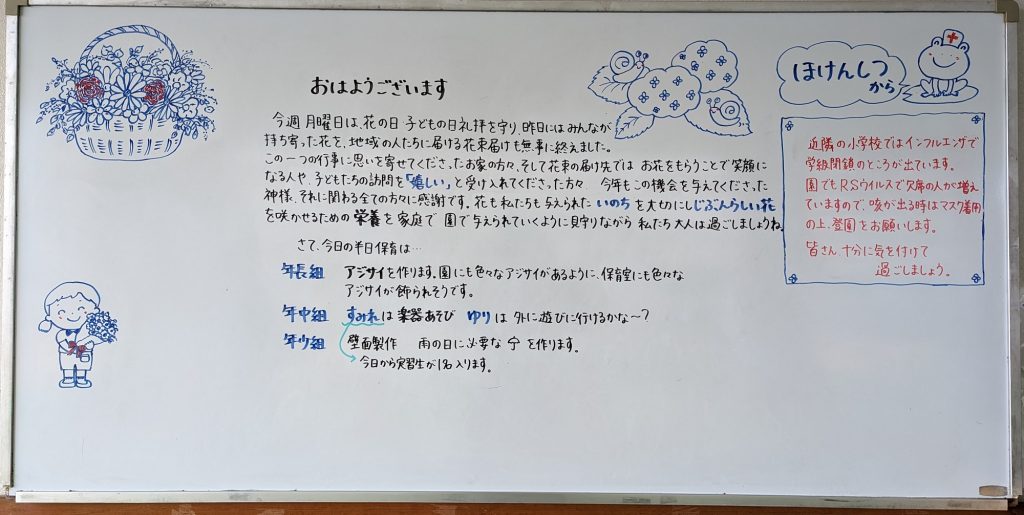 おはようございます
今週月曜日は、花の日 子どもの日礼拝を守り、昨日にはみんなが
持ち寄った花を、地域の人たちに届ける花束届けも無事に終えました。
この一つの行事に思いを寄せてくださったお家の方々、そして花束の届け先では お花をもらうことで笑顔に
なる人や、子どもたちの訪問を「嬉しい」と受け入れてくださった方々、今年もこの機会を与えてくださった
神様、それに関わる全ての方々に感謝です。花も私たちも与えられたいのちを大切にしじぶんらしい花
を咲かせるための栄養を家庭で 園で与えられていくように見守りながら 私たち大人は過ごしましょうね。
さて、今日の半日保育は…
年長組 アジサイを作ります。園にも色々なアジサイがあるように、保育室にも色々な
アジサイが飾られそうです。
年中組 すみれは楽器あそび ゆりは外に遊びに行けるかな〜?
年少組 壁面製作 雨の日に必要な を作ります。
今日から実習生が1名入ります。
ほけんしつ
から
近隣の小学校ではインフルエンザで
学級閉鎖のところが出ています。
園でもRSウイルスで欠席の人が増え
ていますので、咳が出る時はマスク着用
の上、登園をお願いします。
皆さん十分に気を付けて
過ごしましょう。